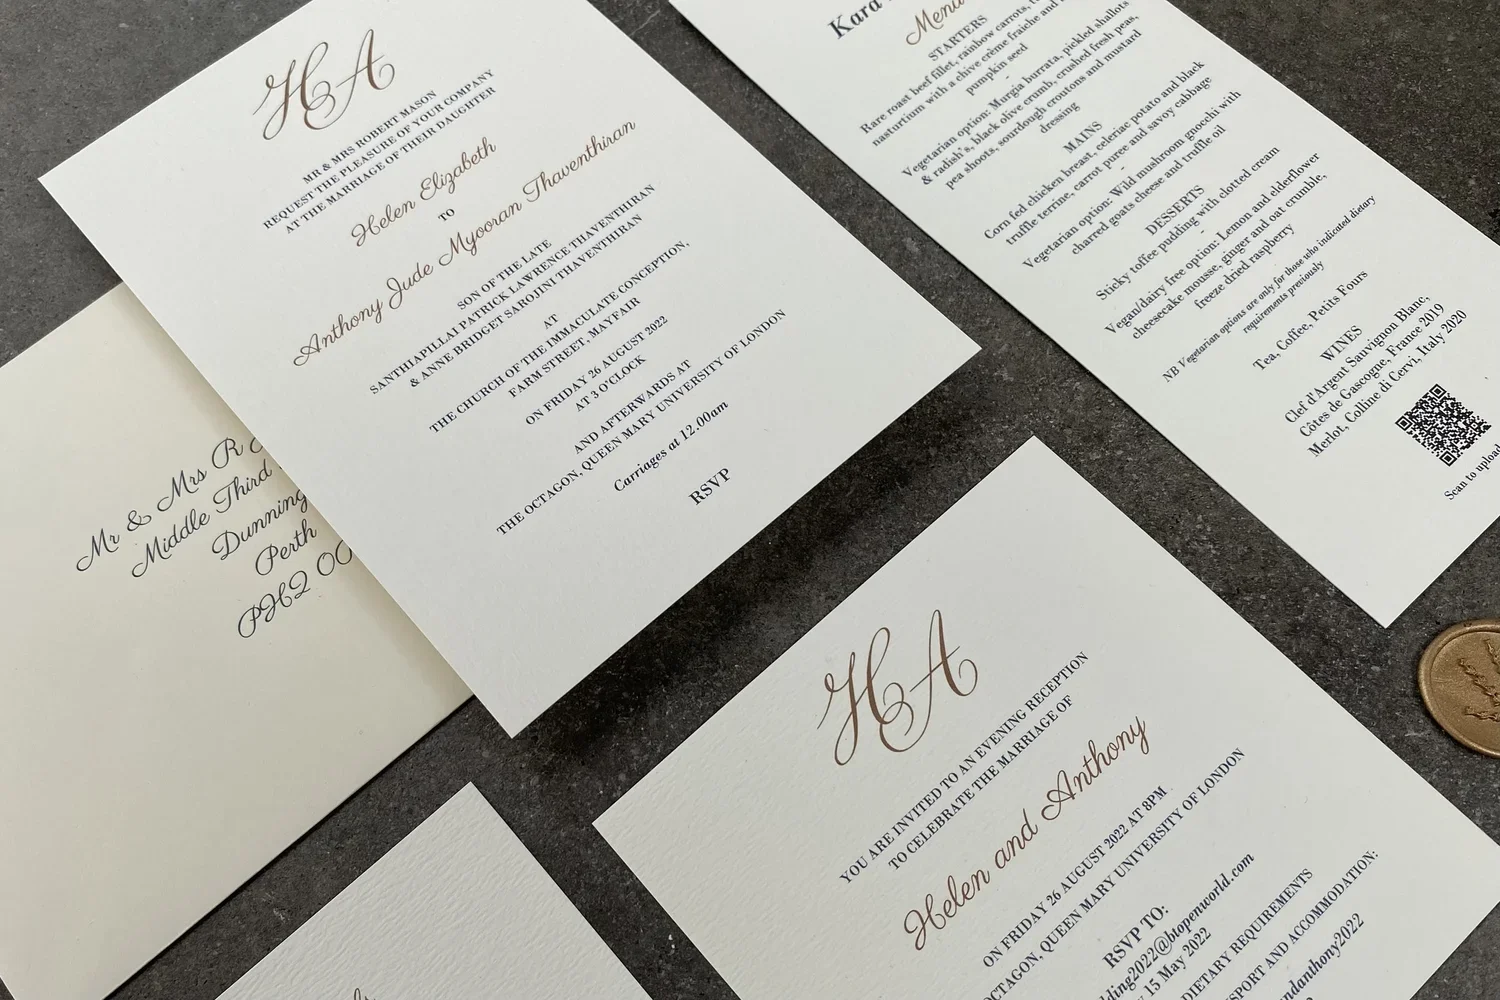 HA
MR & MRS ROBERT MASON
REQUEST THE PLEASURE OF YOUR COMPANY
AT THE MARRIAGE OF THEIR DAUGHTER
Helen Elizabeth
TO
Anthony Jude Myooran Thaventhiran
SON OF THE LATE
SANTHIAPILLAI PATRICK LAWRENCE THAVENTHIRAN
& ANNE BRIDGET SAROJINI THAVENTHIRAN
AT
THE CHURCH OF THE IMMACULATE CONCEPTION,
FARM STREET, MAYFAIR
ON FRIDAY 26 AUGUST 2022
AT 3 O'CLOCK
AND AFTERWARDS AT
THE OCTAGON, QUEEN MARY UNIVERSITY OF LONDON
Carriages at 12.00am
RSVP
Mr & Mrs R
Middle Third
Dunning
Perth
PH2 00
Kara
Menu
STARTERS
Rare roast beef fillet, rainbow carrots,
nasturtium with a chive crème fraiche and
pumpkin seed
-
Vegetarian option: Murgia burrata, pickled shallots
& radish's, black olive crumb, crushed fresh peas,
pea shoots, sourdough croutons and mustard
dressing
MAINS
Corn fed chicken breast, celeriac potato and black
truffle terrine, carrot puree and savoy cabbage
-
Vegetarian option: Wild mushroom gnocchi with
charred goats cheese and truffle oil
DESSERTS
Sticky toffee pudding with clotted cream
-
Vegan/dairy free option: Lemon and elderflower
cheesecake mousse, ginger and oat crumble,
freeze dried raspberry
NB Vegetarian options are only for those who indicated dietary
requirements previously
Tea, Coffee, Petits Fours
WINES
Clef d'Argent Sauvignon Blanc,
Côtes de Gascogne, France 2019
Merlot, Colline di Cervi, Italy 2020
Scan to upload
HA
YOU ARE INVITED TO AN EVENING RECEPTION
TO CELEBRATE THE MARRIAGE OF
Helen and Anthony
ON FRIDAY 26 AUGUST 2022 AT 8PM
OCTAGON, QUEEN MARY UNIVERSITY OF LONDON
RSVP TO:
dding2022@btopenworld.com
15 May 2022
DIETARY REQUIREMENTS
SPORT AND ACCOMMODATION:
ndanthony2022